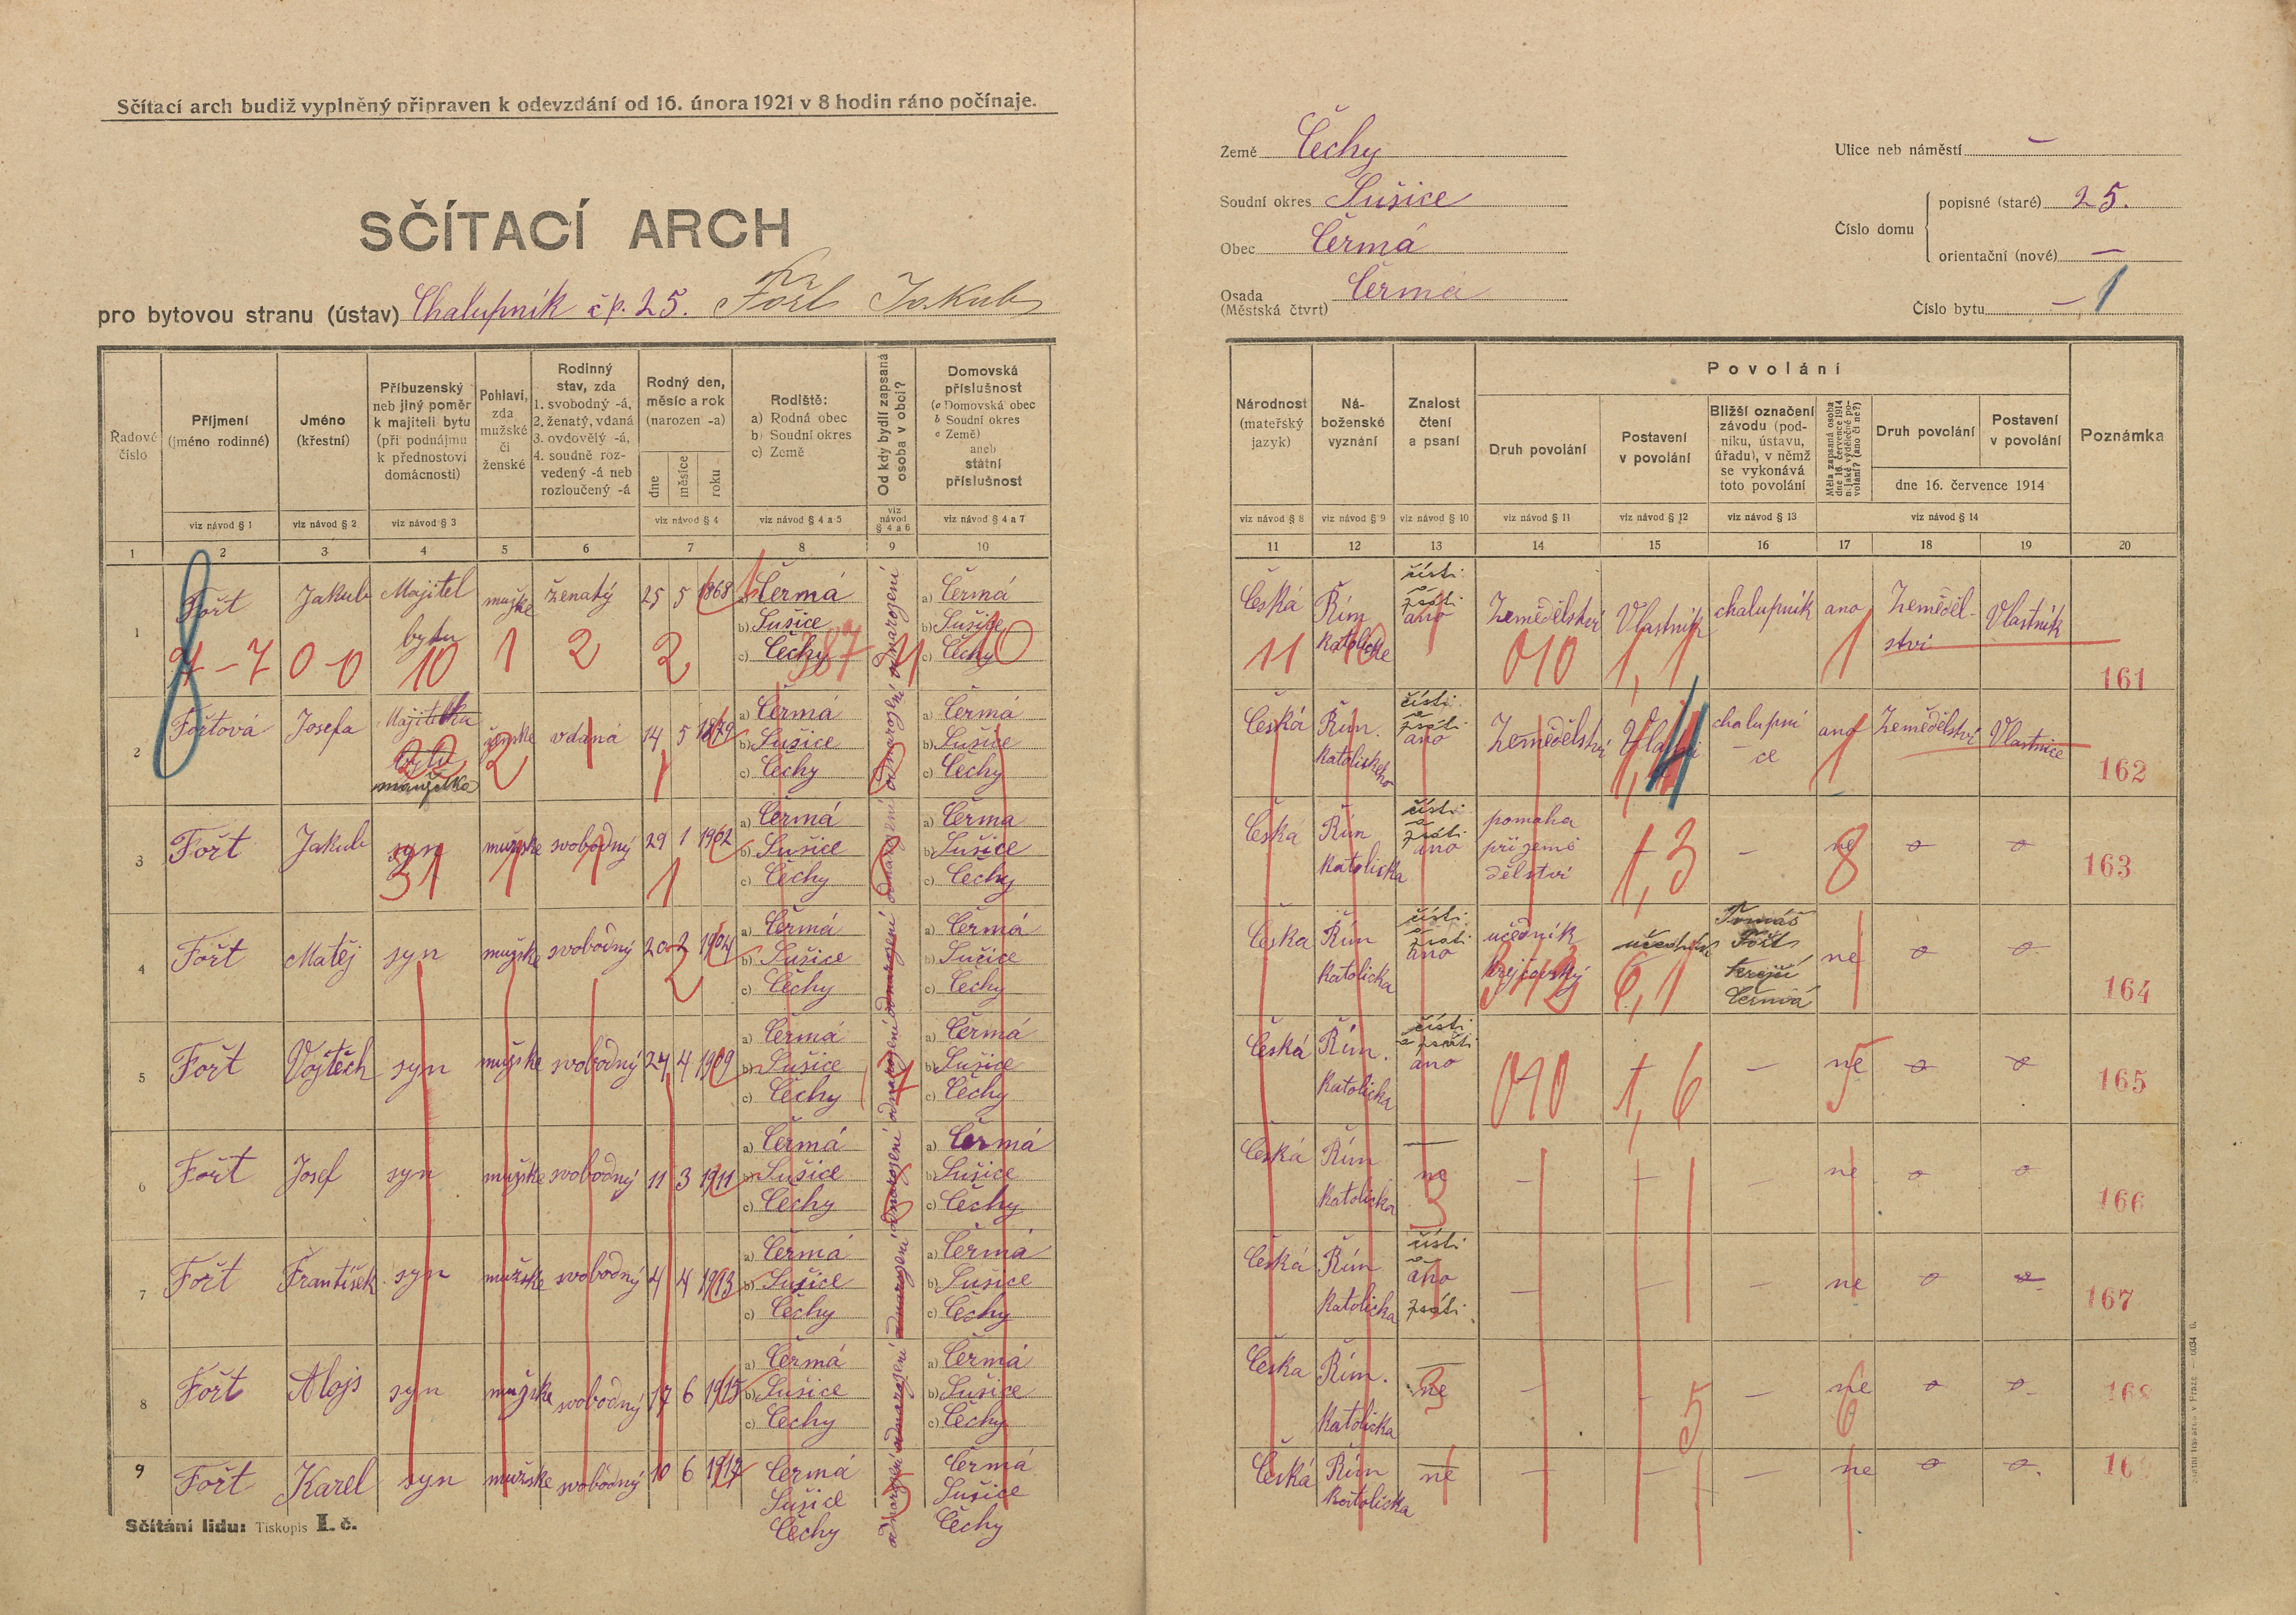 Sčítací arch budiž vyplněný připraven k odevzdání od 16. února 1921 v 8 hodin ráno počínaje.
SČÍTACÍ ARCH
pro bytovou stranu (ústav) Chalupník čp. 25. Fořt Jakub
Země Čechy
Soudní okres Sušice
Obec Čermá
Osada (Městská čtvrt) Čermá
Ulice neb náměstí —
Číslo domu
popisné (staré) 25.
orientační (nové) —
Číslo bytu — 1
Řadové číslo
Příjmení (jméno rodinné)
Jméno (křestní)
Příbuzenský neb jiný poměr k majiteli bytu (při podnájmu k přednostovi domácnosti)
Pohlaví, zda mužské či ženské
Rodinný stav, zda 1. svobodný -á, 2. ženatý, vdaná 3. ovdovělý -á, 4. soudně rozvedený -á neb rozloučený -á
Rodný den, měsíc a rok (narozen -a)
dne měsíce roku
Rodiště: a) Rodná obec b) Soudní okres c) Země
Od kdy bydlí zapsaná osoba v obci?
Domovská příslušnost (a Domovská obec b Soudní okres c Země) aneb státní příslušnost
viz návod § 1 viz návod § 2 viz návod § 3 viz návod § 4 viz návod § 4 a 5 viz návod § 4 a 6 viz návod § 4 a 7
1 2 3 4 5 6 7 8 9 10
Národnost (mateřský jazyk)
Náboženské vyznání
Znalost čtení a psaní
Povolání
Druh povolání
Postavení v povolání
Bližší označení závodu (podniku, ústavu, úřadu), v němž se vykonává toto povolání
Měla zapsaná osoba dne 16. července 1914 nějaké výdělečné povolání? (ano či ne?)
Druh povolání
Postavení v povolání
dne 16. července 1914
Poznámka
viz návod § 8 viz návod § 9 viz návod § 10 viz návod § 11 viz návod § 12 viz návod § 13 viz návod § 14
11 12 13 14 15 16 17 18 19 20
1 Fořt Jakub Majitel bytu mužské ženatý 25 5 1868 a) Čermá b) Sušice c) Čechy od narození a) Čermá b) Sušice c) Čechy
7-7 0-0 10 1 2 2 10
Česká Řím. Katolické čísti a psáti ano Zemědělství Vlastník chalupník ano Zemědělství Vlastník 161
11 10 010 1,1 1
2 Fořtová Josefa Majitelka bytu manželka ženské vdaná 14 5 1879 a) Čermá b) Sušice c) Čechy od narození a) Čermá b) Sušice c) Čechy
Česká Řím. Katolického čísti a psáti ano Zemědělství chalupnice ano Zemědělství Vlastnice 162
3 Fořt Jakub syn mužske svobodný 29 1 1902 a) Čermá b) Sušice c) Čechy od narození a) Čermá b) Sušice c) Čechy
31 1
Česká Řím Katolicka čísti a psáti ano pomaha při zemědělství — ne o o 163
1,3 8
4 Fořt Matěj syn mužske svobodný 20 2 1904 a) Čermá b) Sušice c) Čechy od narození a) Čermá b) Sušice c) Čechy
Česka Řím Katolicka čísti a psáti ano učedník krejčovský učedník Tomáš Fořt krejčí Čermá ne o o 164
6,1
5 Fořt Vojtěch syn mužske svobodný 24 4 1909 a) Čermá b) Sušice c) Čechy od narození a) Čermá b) Sušice c) Čechy
Česká Řím. Katolicka čísti a psáti ano — ne o o 165
010 1,6 5
6 Fořt Josef syn mužske svobodný 11 3 1911 a) Čermá b) Sušice c) Čechy od narození a) Čermá b) Sušice c) Čechy
Česká Řím Katolicka — ne — — — ne o o 166
3
7 Fořt František syn mužske svobodný 4 4 1913 a) Čermá b) Sušice c) Čechy od narození a) Čermá b) Sušice c) Čechy
Česká Řím Katolicka čísti a ano psáti — — — ne o o 167
8 Fořt Alojs syn mužske svobodný 17 6 1915 a) Čermá b) Sušice c) Čechy od narození a) Čermá b) Sušice c) Čechy
Česka Řím. Katolicka — ne — — ne o o 168
3 5 6
9 Fořt Karel syn mužske svobodný 10 6 1917 Čermá Sušice Čechy od narození Čermá Sušice Čechy
Česká Řím Katolicka — ne — — — ne o o 169
Sčítání lidu: Tiskopis I. č.